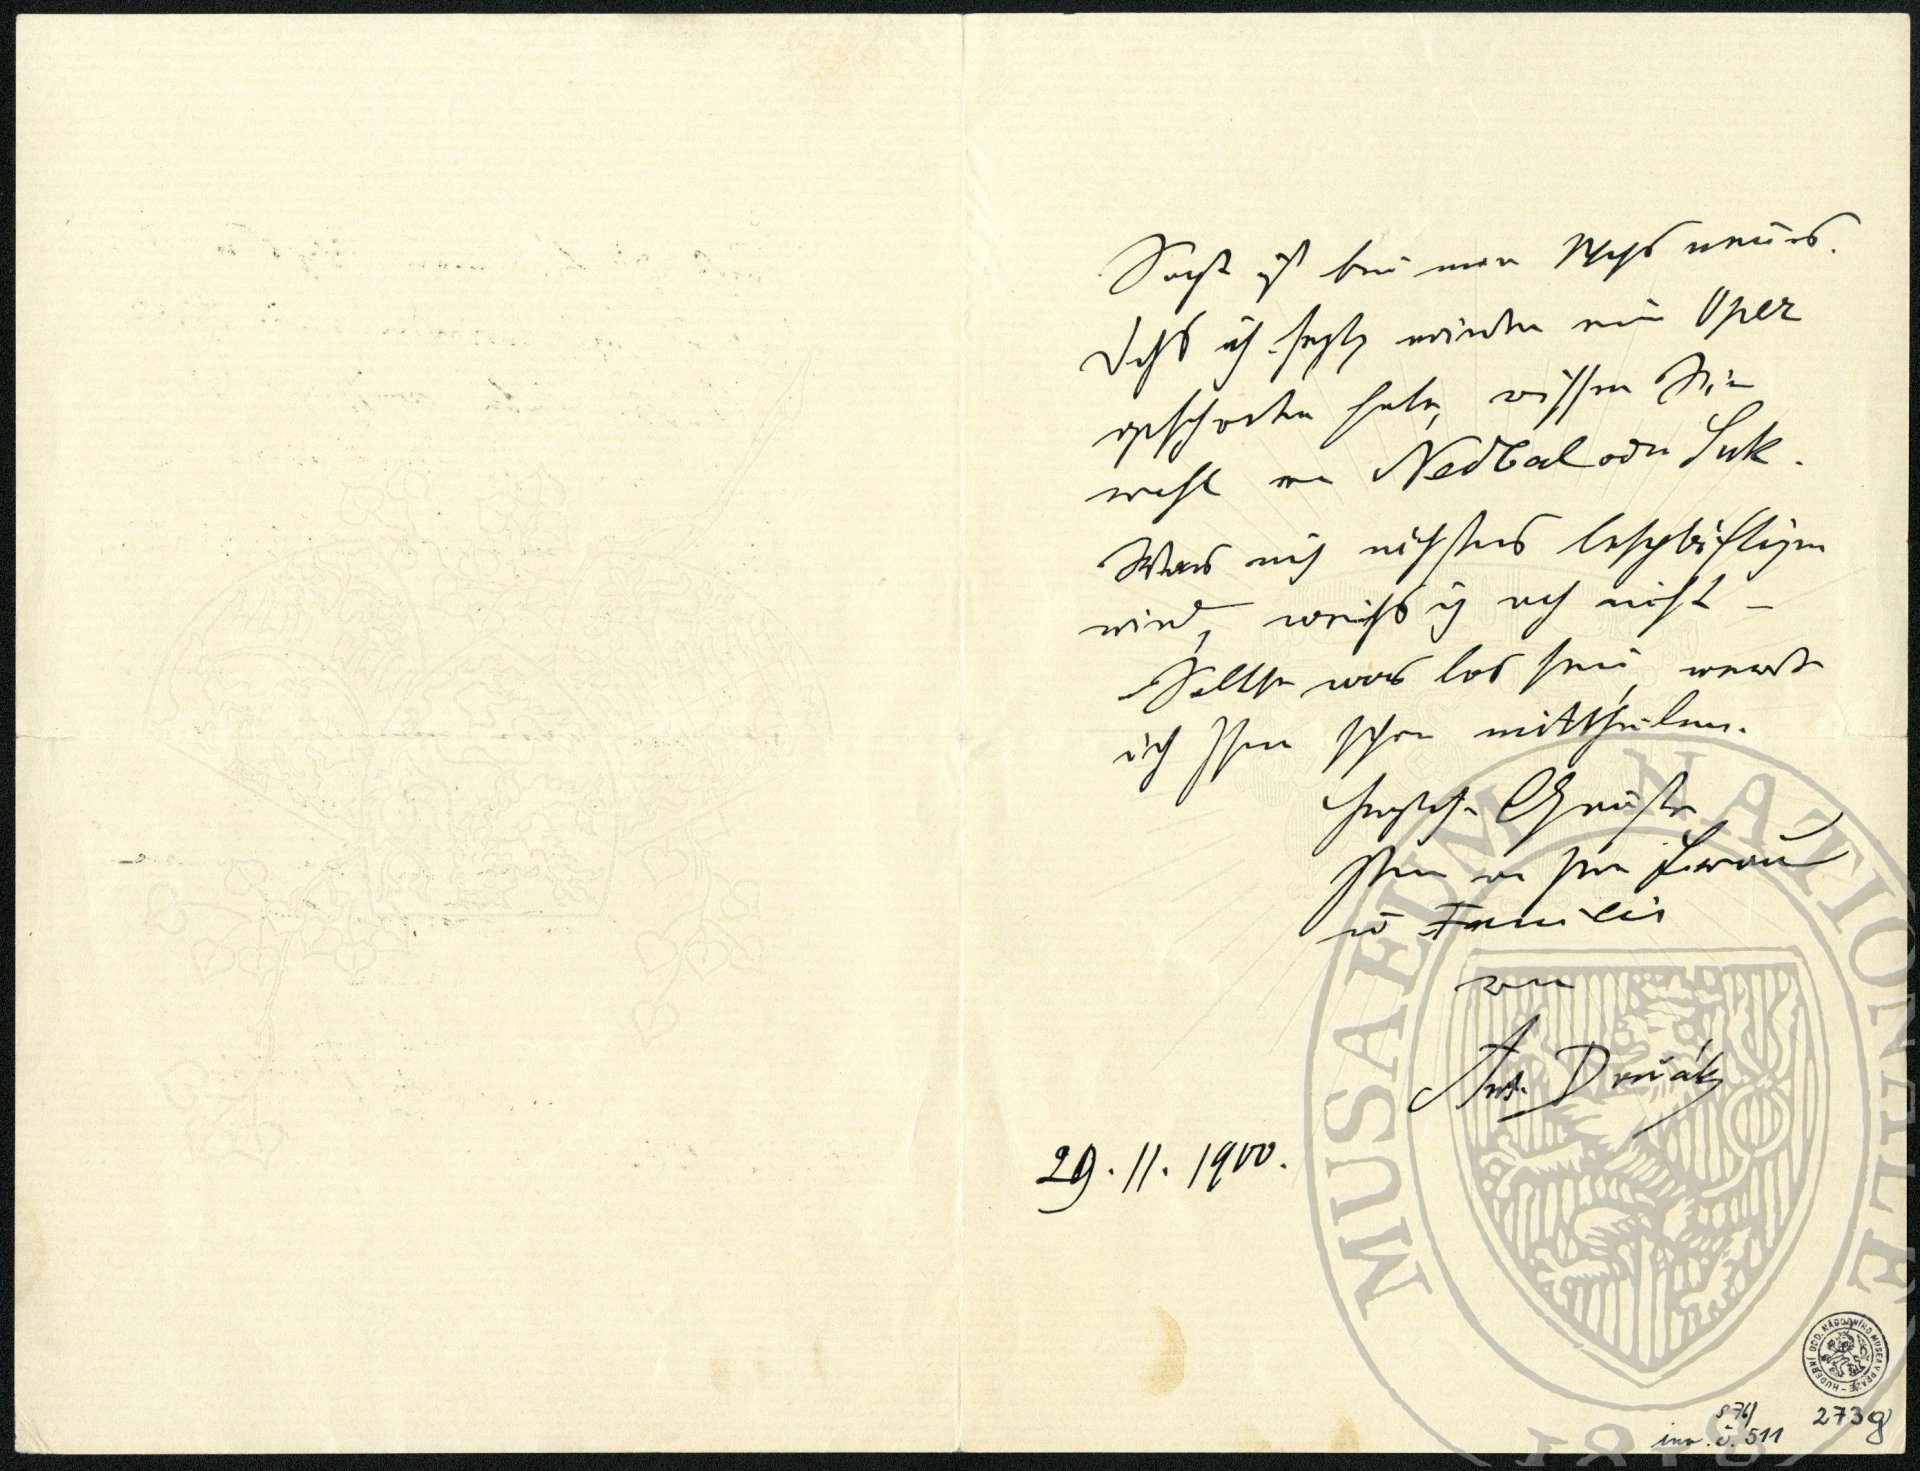 Sonst ist bei mir Nichts neues.
Daß ich jetzt wieder eine Oper
geschrieben habe, wissen Sie
wohl von Nedbal oder Suk.
Was mich nächstens beschäftigen
wird, weiß ich noch nicht –
Sollte was los sein, werde
ich Ihnen schon mittheilen.
Herzliche Grüße
Ihnen und Ihrer Frau
u Familie
von
Ant. Dvořák
29. 11. 1900.
MUSAEUM NATIONALE
1818
HUDEBNÍ ODD. NÁRODNÍHO MUSEA V PRAZE
S 76/
273g
inv. č. 511